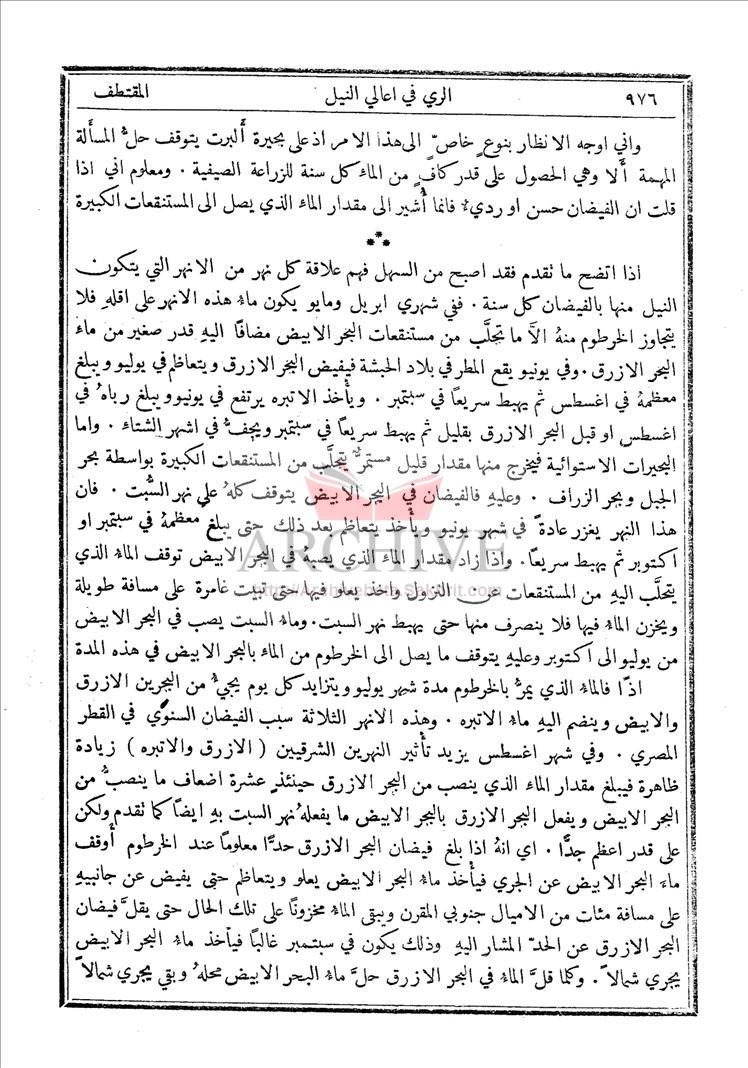 ٩٧٦ الري في اعالي النيل المقتطف
واني اوجه الانظار بنوعٍ خاصٍّ الى هذا الامر اذ على بحيرة ألبرت يتوقف حلُّ المسألة
المهمة ألا وهي الحصول على قدر كافٍ من الماء كل سنة للزراعة الصيفية . ومعلوم اني اذا
قلت ان الفيضان حسن او رديءٌ فانما أُشير الى مقدار الماء الذي يصل الى المستنقعات الكبيرة
***
اذا اتضح ما تقدم فقد اصبح من السهل فهم علاقة كل نهر من الانهر التي يتكون
النيل منها بالفيضان كل سنة . ففي شهري ابريل ومايو يكون ماءُ هذه الانهر على اقلهِ فلا
يتجاوز الخرطوم منهُ الاَّ ما تجلَّب من مستنقعات البحر الابيض مضافًا اليهِ قدر صغير من ماء
البحر الازرق . وفي يونيو يقع المطر في بلاد الحبشة فيفيض البحر الازرق ويتعاظم في يوليو ويبلغ
معظمهُ في اغسطس ثم يهبط سريعًا في سبتمبر . ويأخذ الاتبره يرتفع في يونيو ويبلغ رباهُ في
اغسطس او قبل البحر الازرق بقليل ثم يهبط سريعًا في سبتمبر ويجفُّ في اشهر الشتاء . واما
البحيرات الاستوائية فيخرج منها مقدار قليل مستمرٌّ يتجلَّب من المستنقعات الكبيرة بواسطة بحر
الجبل وبحر الزراف . وعليهِ فالفيضان في البحر الابيض يتوقف كلهُ على نهر السُّبت . فان
هذا النهر يغزر عادةً في شهر يونيو ويأخذ يتعاظم بعد ذلك حتى يبلغ معظمهُ في سبتمبر او
اكتوبر ثم يهبط سريعًا . واذا زاد مقدار الماء الذي يصبهُ في البحر الابيض توقف الماءُ الذي
يتجلَّب اليهِ من المستنقعات عن النزول واخذ يعلو فيها حتى تبيت غامرة على مسافة طويلة
ويخزن الماءُ فيها فلا ينصرف منها حتى يهبط نهر السبت . وماءُ السبت يصب في البحر الابيض
من يوليو الى اكتوبر وعليهِ يتوقف ما يصل الى الخرطوم من الماء بالبحر الابيض في هذه المدة
اذًا فالماءُ الذي يمرُّ بالخرطوم مدة شهر يوليو ويتزايد كل يوم يجيءُ من البحرين الازرق
والابيض وينضم اليهِ ماءُ الاتبره . وهذه الانهر الثلاثة سبب الفيضان السنوي في القطر
المصري . وفي شهر اغسطس يزيد تأثير النهرين الشرقيين ( الازرق والاتبره ) زيادة
ظاهرة فيبلغ مقدار الماء الذي ينصب من البحر الازرق حينئذٍ عشرة اضعاف ما ينصبُّ من
البحر الابيض ويفعل البحر الازرق بالبحر الابيض ما يفعلهُ نهر السبت بهِ ايضًا كما تقدم ولكن
على قدر اعظم جدًّا . اي انهُ اذا بلغ فيضان البحر الازرق حدًّا معلومًا عند الخرطوم أوقف
ماءَ البحر الابيض عن الجري فيأخذ ماءُ البحر الابيض يعلو ويتعاظم حتى يفيض عن جانبيهِ
على مسافة مئات من الاميال جنوبي المقرن ويبقى الماءُ مخزونًا على تلك الحال حتى يقلَّ فيضان
البحر الازرق عن الحدّ المشار اليهِ وذلك يكون في سبتمبر غالبًا فيأخذ ماءُ البحر الابيض
يجري شمالاً . وكلما قلَّ الماءُ في البحر الازرق حلَّ ماءُ البحر الابيض محلهُ وبقي يجري شمالاً
ARCHIVE